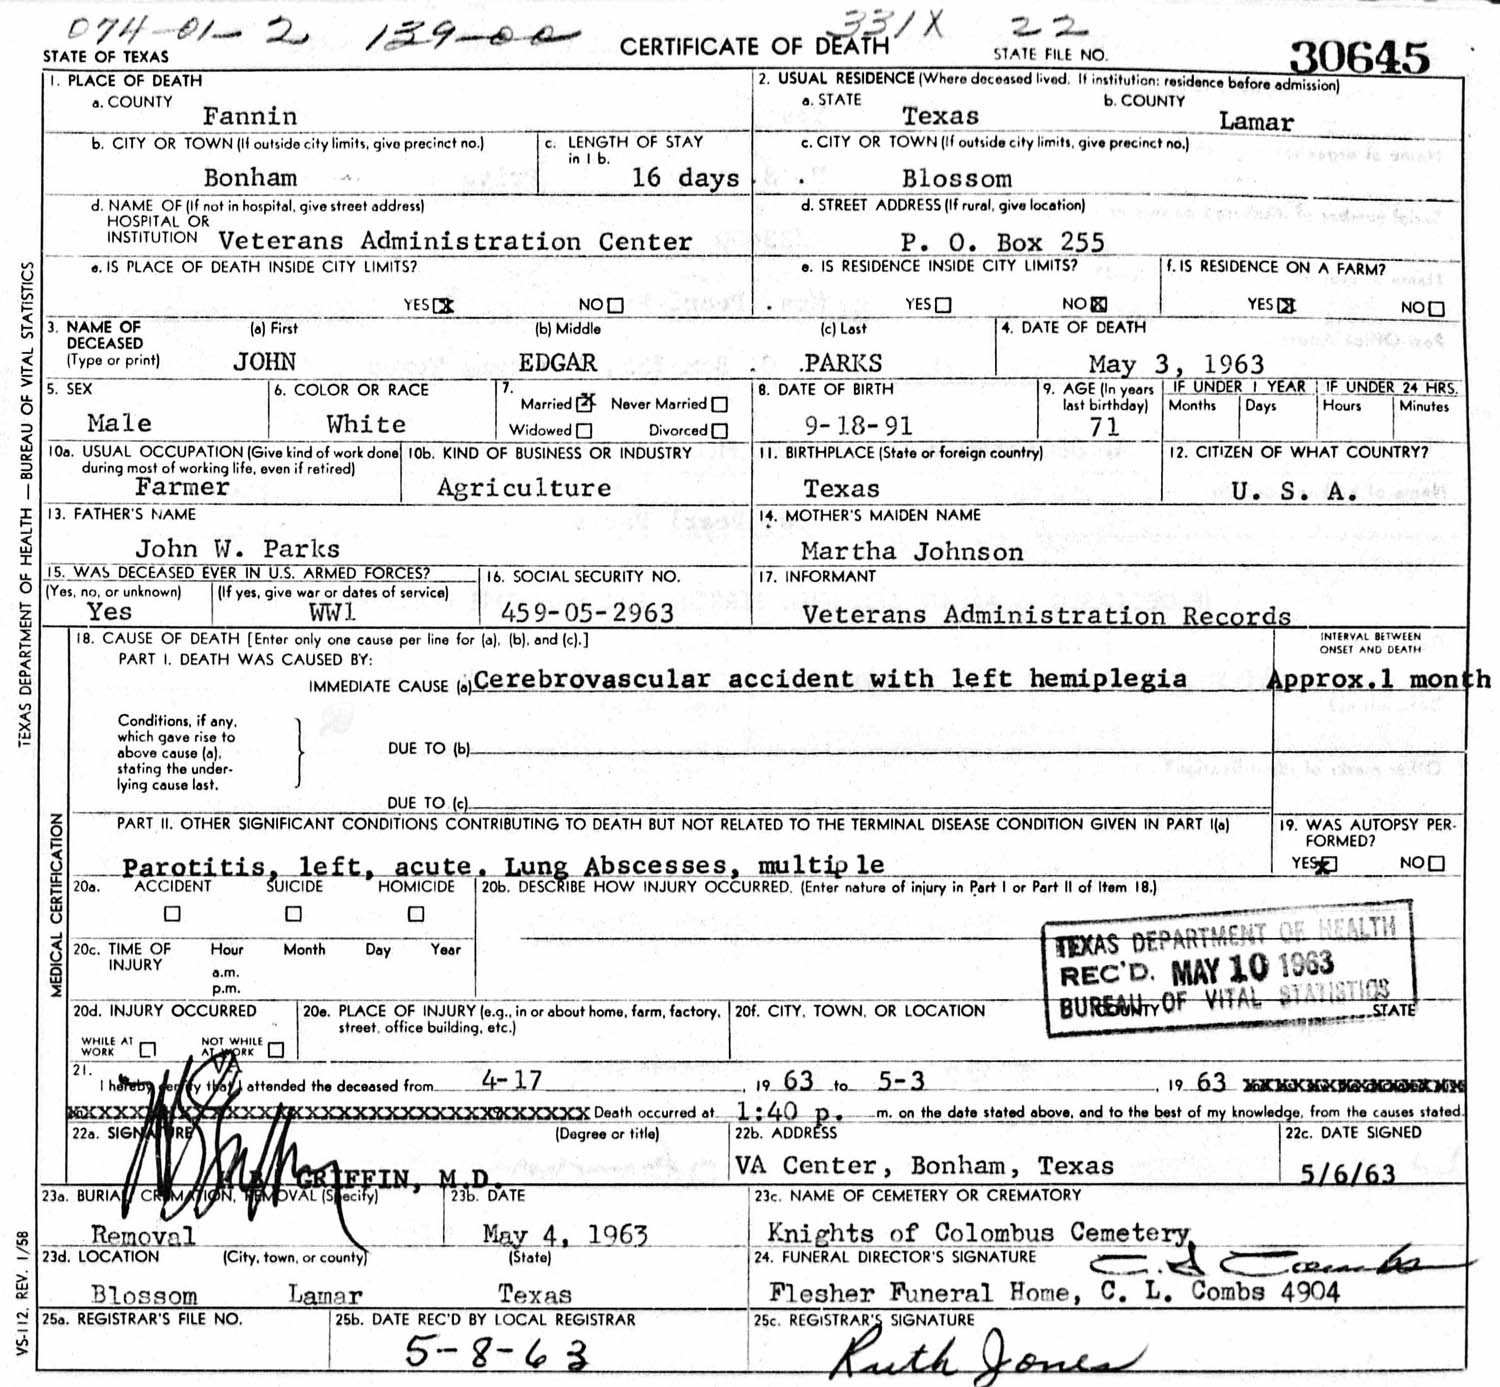 074-01-2 139-00 331X 22
STATE OF TEXAS CERTIFICATE OF DEATH STATE FILE NO. 30645
1. PLACE OF DEATH
a. COUNTY
Fannin
2. USUAL RESIDENCE (Where deceased lived. If institution: residence before admission)
a. STATE b. COUNTY
Texas Lamar
b. CITY OR TOWN (If outside city limits, give precinct no.)
Bonham
c. LENGTH OF STAY
in 1 b.
16 days
c. CITY OR TOWN (If outside city limits, give precinct no.)
Blossom
d. NAME OF (If not in hospital, give street address)
HOSPITAL OR
INSTITUTION Veterans Administration Center
d. STREET ADDRESS (If rural, give location)
P. O. Box 255
e. IS PLACE OF DEATH INSIDE CITY LIMITS?
YES☒ NO☐
e. IS RESIDENCE INSIDE CITY LIMITS?
YES☐ NO☒
f. IS RESIDENCE ON A FARM?
YES☒ NO☐
3. NAME OF
DECEASED
(Type or print)
(a) First (b) Middle (c) Last
JOHN EDGAR PARKS
4. DATE OF DEATH
May 3, 1963
5. SEX
Male
6. COLOR OR RACE
White
7.
Married☒ Never Married☐
Widowed☐ Divorced☐
8. DATE OF BIRTH
9-18-91
9. AGE (In years
last birthday)
71
IF UNDER 1 YEAR IF UNDER 24 HRS.
Months Days Hours Minutes
10a. USUAL OCCUPATION (Give kind of work done
during most of working life, even if retired)
Farmer
10b. KIND OF BUSINESS OR INDUSTRY
Agriculture
11. BIRTHPLACE (State or foreign country)
Texas
12. CITIZEN OF WHAT COUNTRY?
U. S. A.
13. FATHER'S NAME
John W. Parks
14. MOTHER'S MAIDEN NAME
Martha Johnson
15. WAS DECEASED EVER IN U.S. ARMED FORCES?
(Yes, no, or unknown) (If yes, give war or dates of service)
Yes WW1
16. SOCIAL SECURITY NO.
459-05-2963
17. INFORMANT
Veterans Administration Records
18. CAUSE OF DEATH [Enter only one cause per line for (a), (b), and (c).]
PART I. DEATH WAS CAUSED BY:
INTERVAL BETWEEN
ONSET AND DEATH
IMMEDIATE CAUSE (a) Cerebrovascular accident with left hemiplegia Approx.1 month
Conditions, if any,
which gave rise to
above cause (a),
stating the under-
lying cause last.
DUE TO (b)
DUE TO (c)
PART II. OTHER SIGNIFICANT CONDITIONS CONTRIBUTING TO DEATH BUT NOT RELATED TO THE TERMINAL DISEASE CONDITION GIVEN IN PART I(a)
Parotitis, left, acute. Lung Abscesses, multiple
19. WAS AUTOPSY PER-
FORMED?
YES☒ NO☐
20a. ACCIDENT SUICIDE HOMICIDE
☐ ☐ ☐
20b. DESCRIBE HOW INJURY OCCURRED. (Enter nature of injury in Part I or Part II of Item 18.)
20c. TIME OF
INJURY
Hour Month Day Year
a.m.
p.m.
TEXAS DEPARTMENT OF HEALTH
REC'D. MAY 10 1963
BUREAU OF VITAL STATISTICS
20d. INJURY OCCURRED
WHILE AT
WORK ☐
NOT WHILE
AT WORK ☐
20e. PLACE OF INJURY (e.g., in or about home, farm, factory,
street, office building, etc.)
20f. CITY, TOWN, OR LOCATION COUNTY STATE
VA
21. I hereby certify that I attended the deceased from 4-17, 1963 to 5-3, 1963
Death occurred at 1:40 p. m. on the date stated above, and to the best of my knowledge, from the causes stated.
22a. SIGNATURE (Degree or title)
GRIFFIN, M.D.
22b. ADDRESS
VA Center, Bonham, Texas
22c. DATE SIGNED
5/6/63
23a. BURIAL, CREMATION, REMOVAL (Specify)
Removal
23b. DATE
May 4, 1963
23c. NAME OF CEMETERY OR CREMATORY
Knights of Colombus Cemetery
23d. LOCATION (City, town, or county) (State)
Blossom Lamar Texas
24. FUNERAL DIRECTOR'S SIGNATURE
C. L. Combs
Flesher Funeral Home, C. L. Combs 4904
25a. REGISTRAR'S FILE NO.
25b. DATE REC'D BY LOCAL REGISTRAR
5-8-63
25c. REGISTRAR'S SIGNATURE
Ruth Jones
TEXAS DEPARTMENT OF HEALTH — BUREAU OF VITAL STATISTICS
MEDICAL CERTIFICATION
VS-112, REV. 1/58